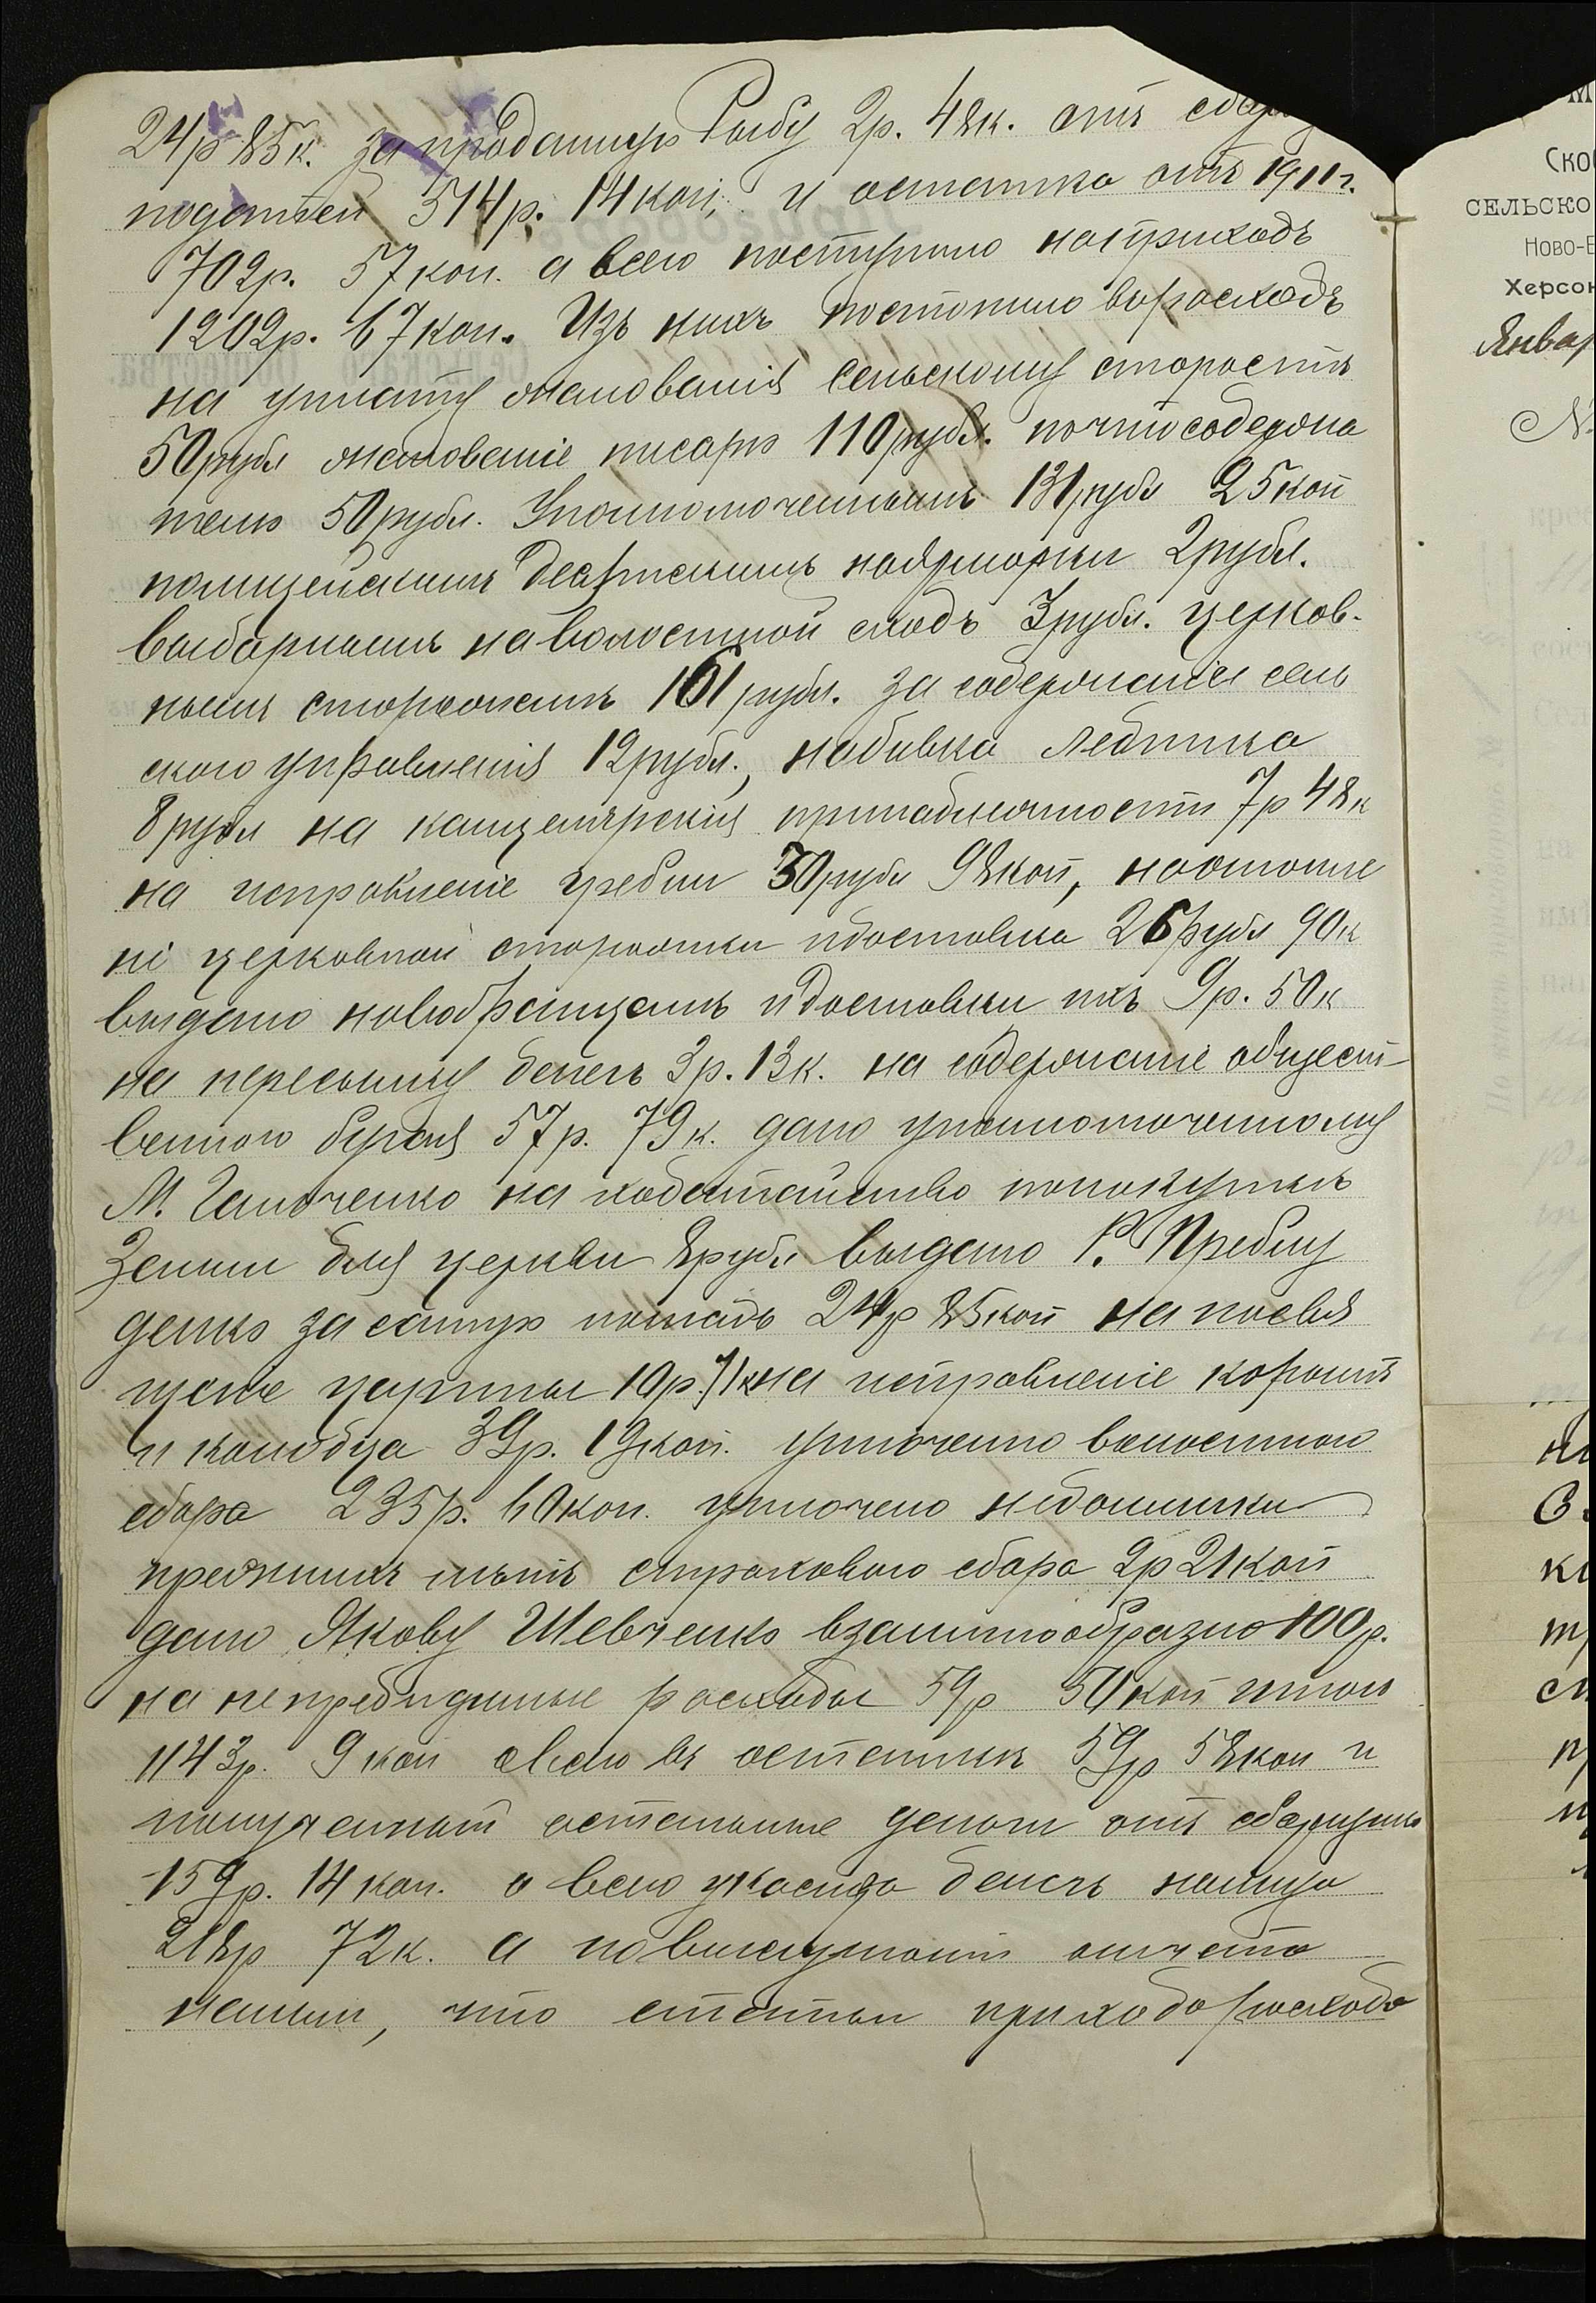 24р 85к. за проданную Рыбу 2р. 48к. отъ сбор
податей 514р. 14коп, и остатка отъ 1911г.
702р. 57коп. а всего поступило наприходъ
1202р. 67коп. Изъ нихъ поступило vъ росходъ
на уплату жалованія Сельскому старостѣ
50рубл жалованіе писарю 110рубл. почтосодержа
телю 50рубл. Уполномоченнымъ 131рубл 25коп
полицейскимъ Десятскимъ наярморки 2рубл.
выборнымъ наволостной сходъ 3рубл. церков-
нымъ сторожамъ 161рубл. за содержаніе сель
ского управленія 12рубл., набивка Ледника
8рубл на канцелярскія принадлежности 7р 48к
на исправленіе гребли 30рубл 98коп, наотопле
ні церковной сторожки идоставка 26рубл 90к
выдано новобранцамъ идоставки ихъ 9р. 50к
на пересылку денегъ 3р. 13к. на содержаніе общест-
венного бугая 57р. 79к. дано уполномоченному
М. на ходатайство попокупкѣ
Земли для церкви 8рубл выдано Г.
за лошадь 24р 85коп на посвя
щеніе 10р. 71к на исправленіе коровъ
и колодца 39р. 19коп. уплочено волостного
сбора 235р. 60коп. уплочено недоимки
прежнихъ лѣтъ страхового сбора 2р 21коп
дано Якову Шевченко взаимообразно 100р.
на непредвидимые росходы 59р 50коп итого
1143р. 9коп а въ остаткѣ 59р 58коп и
остальные денги отъ сборщика
159р. 14коп. а всего денегъ налицо
218р 72к. а отчета
нашли, что статьи прихода росхода
СЕЛЬСКО
Херсон
Январ